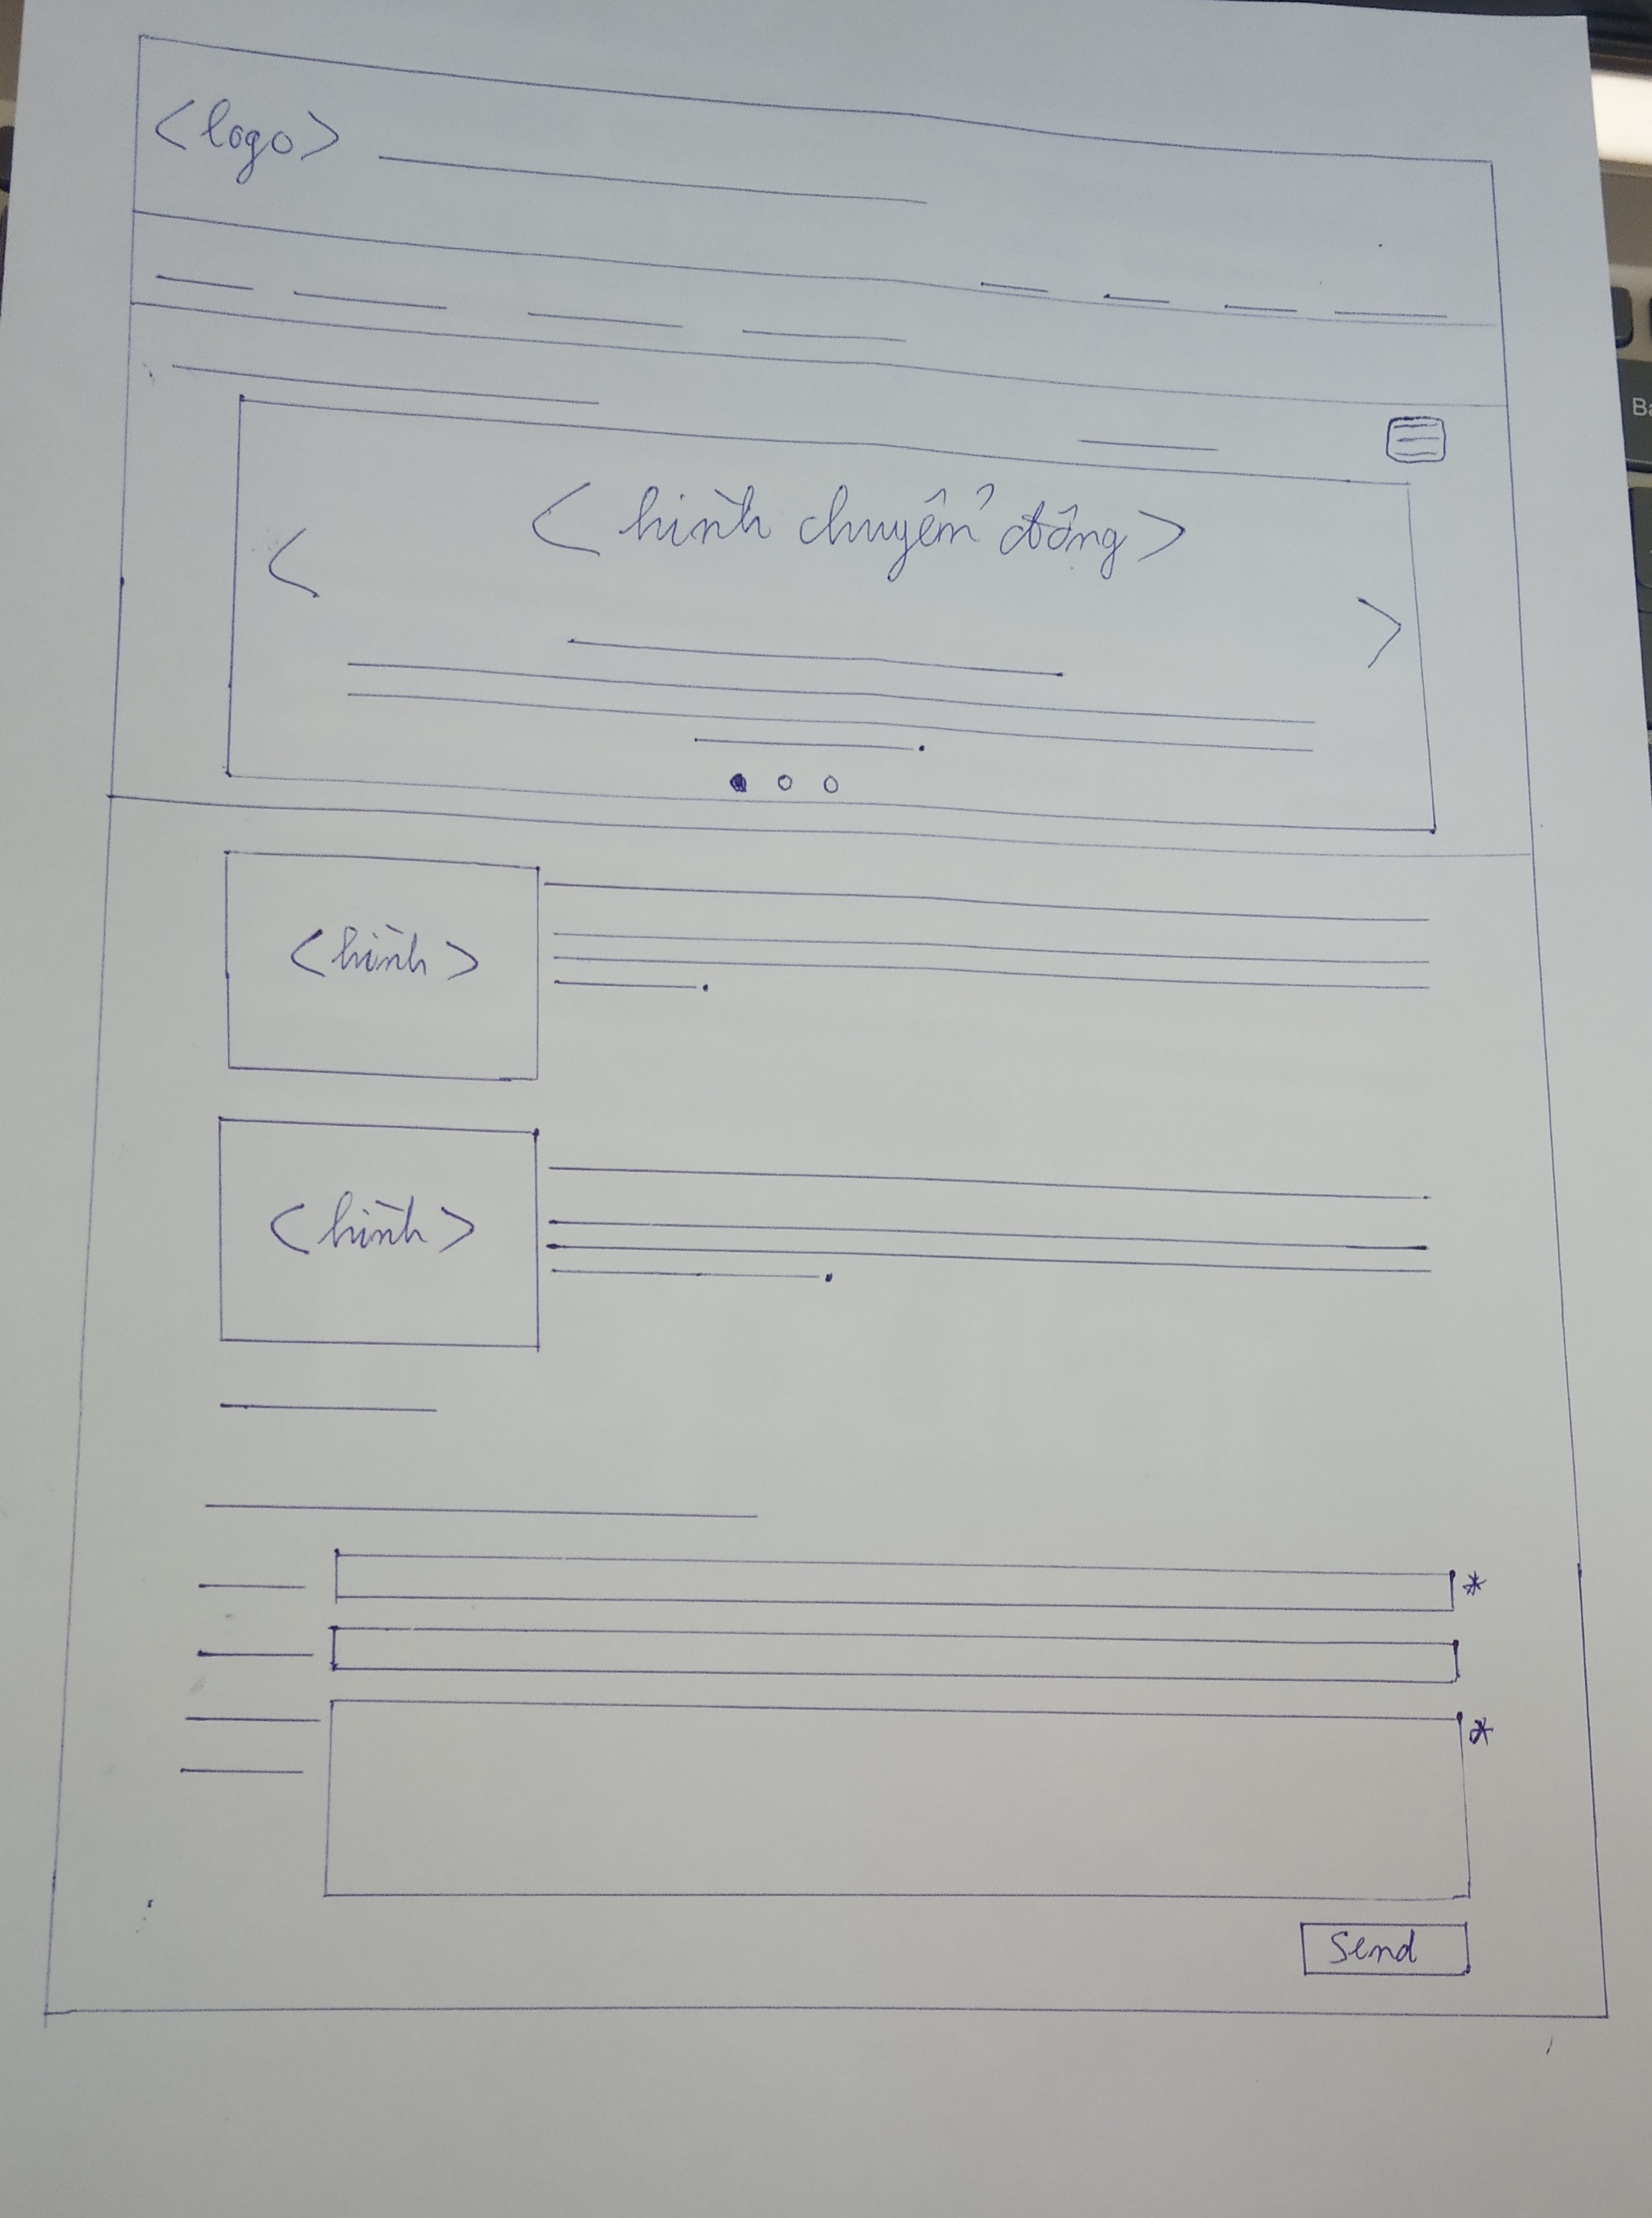 <logo>
<hình chuyển động>
<
>
<hình>
<hình>
*
*
Send
Ba